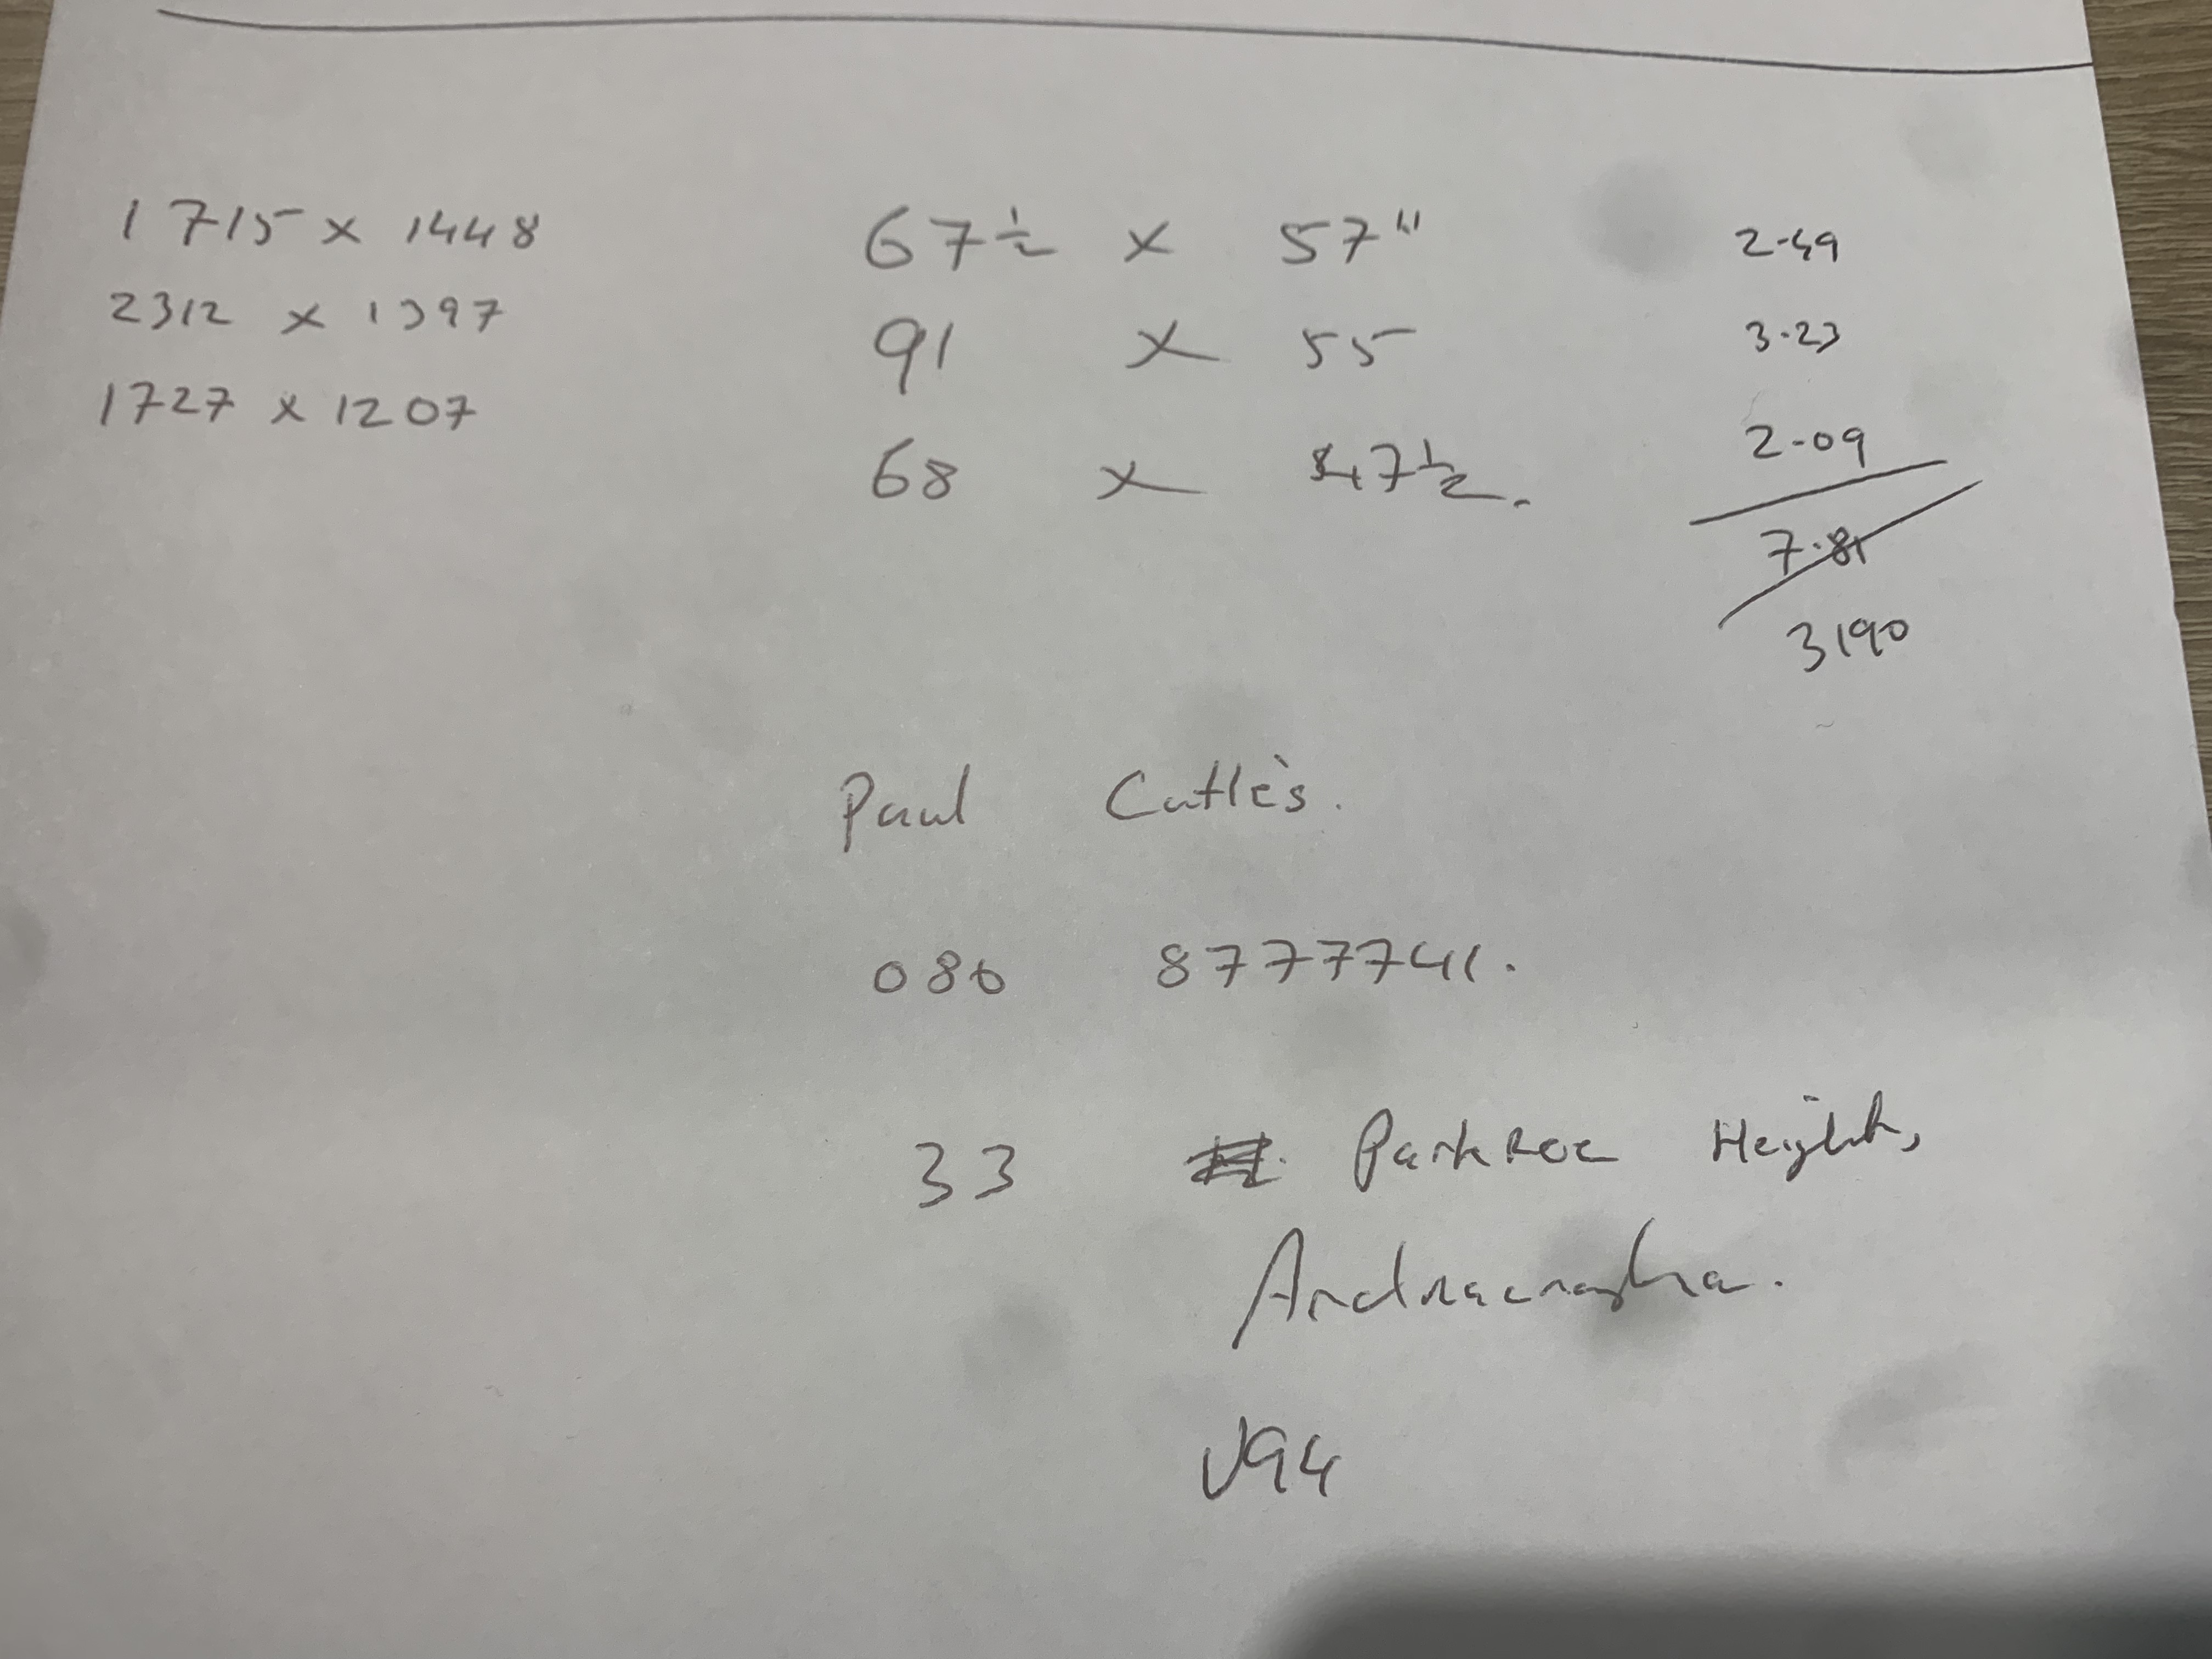 1715 x 1448 67½ x 57" 2.49
2312 x 1397 91 x 55 3.23
1727 x 1207 68 x 47½. 2.09
7.81
3190
Paul
086 8777741.
33 Parkroe Heights,
Ardnacrusha.
V94